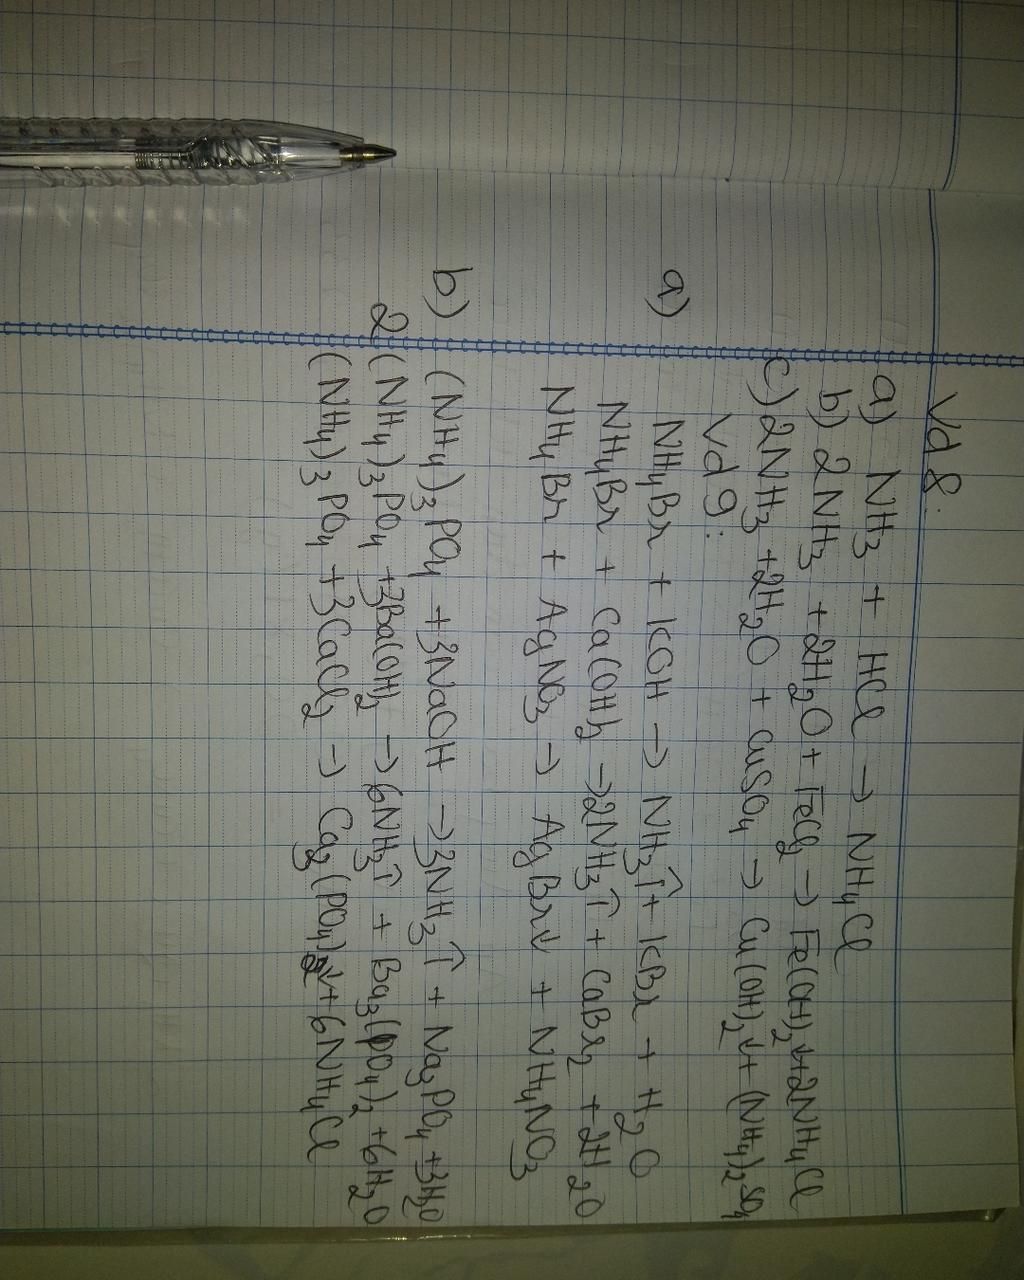 Vd 8:
a) NH₃ + HCl → NH₄Cl
b) 2NH₃ + 2H₂O + FeCl₂ → Fe(OH)₂↓ + 2NH₄Cl
c) 2NH₃ + 2H₂O + CuSO₄ → Cu(OH)₂↓ + (NH₄)₂SO₄
Vd 9:
a) NH₄Br + KOH → NH₃↑ + KBr + H₂O
NH₄Br + Ca(OH)₂ → 2NH₃↑ + CaBr₂ + 2H₂O
NH₄Br + AgNO₃ → AgBr↓ + NH₄NO₃
b) (NH₄)₃PO₄ + 3NaOH → 3NH₃↑ + Na₃PO₄ + 3H₂O
2(NH₄)₃PO₄ + 3Ba(OH)₂ → 6NH₃↑ + Ba₃(PO₄)₂ + 6H₂O
(NH₄)₃PO₄ + 3CaCl₂ → Ca₃(PO₄)₂↓ + 6NH₄Cl